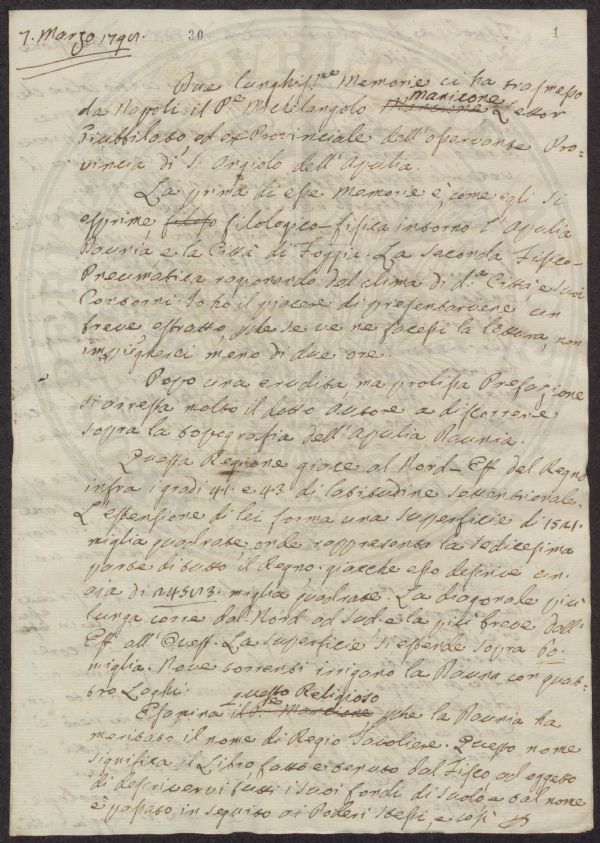 7. Marzo 179
30
1
Due lunghiss.me Memorie ci ha trasmesso
da Napoli il P.e Michelangelo Manicone Lettor
Giubbilato ed ex Provinciale dell'osservante Pro=
vincia di S. Angiolo dell'Apulia.
La prima di esse Memorie è, come egli si
esprime, filologico-fisica intorno l'Apulia
Daunia e la Città di Foggia. La seconda Fisico-
Pneumatica ragionando del clima di d.a Città e suoi
Contorni. Io ho il piacere di presentarvene un
breve estratto, che se ve ne facessi la lettura, non
impiegherei meno di due ore.
Dopo una erudita ma prolissa Prefazione
si arresta molto il dotto Autore a discorrere
sopra la topografia dell'Apulia Daunia.
Questa Regione giace al Nord-Est del Regno
infra i gradi 41. e 43. di latitudine settentrionale.
L'estensione di lei forma una superficie di 1541.
miglia quadrate, onde rappresenta la sedicesima
parte di tutto il Regno. giacchè esso descrive un
aja di 24513. miglia quadrate. La diagonale più
lunga corre dal Nord ad Sud. e la più breve dall'
Est all'Ovest. La superficie si estende sopra 60.
miglia. Nove torrenti irrigano la Daunia con quat=
tro Laghi.
Esamina questo Religioso che la Daunia ha
meritato il nome di Regio Tavoliere. Questo nome
significa il Libro fatto e tenuto dal Fisco ad oggetto
di descrivervi tutti i suoi fondi di suolo, e dal nome
è passato in seguito ai Poderi stessi, e così